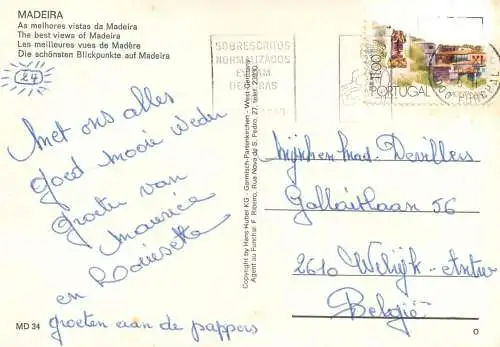 MADEIRA
As melhores vistas da Madeira
The best views of Madeira
Les meilleures vues de Madère
Die schönsten Blickpunkte auf Madeira
24
SOBRESCRITOS
NORMALIZADOS
EVITAM
DEMORAS
1100
PORTUGAL
Met ons alles
goed mooie weder
groeten van
Maurice
en Louisette
groeten aan de pappers
Copyright by Hans Huber KG - Garmisch-Partenkirchen - West-Germany
Agent au Funchal: F. Ribeiro, Rua Nova de S. Pedro, 27, telef.
Mijnheer Mad. Devillers
Gallaitlaan 56
2610 Wilrijk - Antw
België
MD 34
O